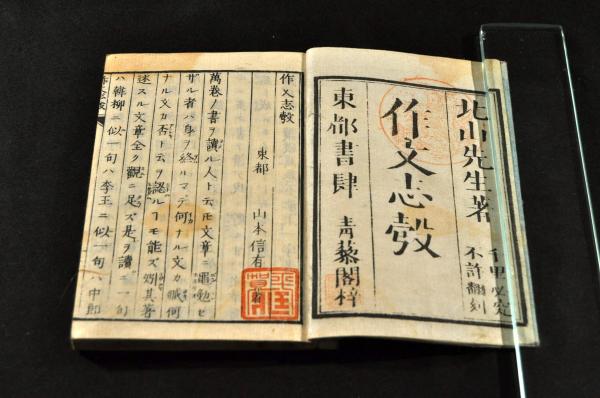 北山先生著
不許翻刻
作文志彀
東都書肆 青藜閣梓
作文志彀
東都 山本信有
萬卷ノ書ヲ讀ル人ト云ドモ文章ニ黽勉セ
ザル者ハ身ヲ終ルマデ何ナル文カ 何
ナル文カ否ト云ヲ認ルコモ能ズ 其著
述スル文章全ク觀ニ足ズ是ヲ讀ニ一句
ハ韓柳ニ似一句ハ李王ニ似一句ハ中郎